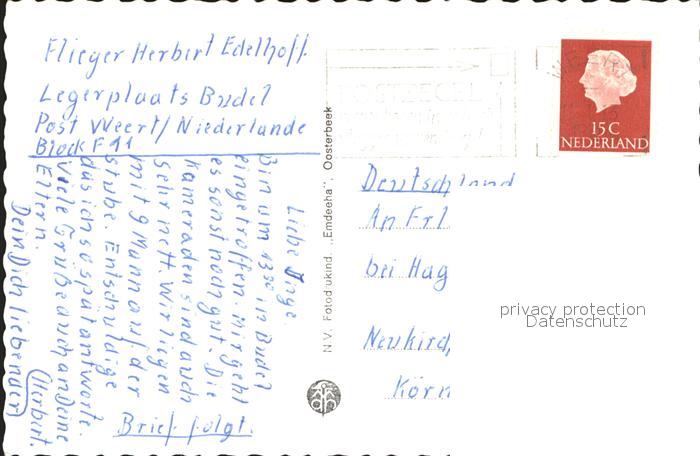 Flieger Herbert Edelhoff
Legerplaats Budel
Post Weert/Niederlande
Block F 11
Liebe Inge.
Bin um 13³⁰ in Budel
eingetroffen. Mir geht
es sonst noch gut. Die
Kameraden sind auch
sehr nett. Wir liegen
mit 9 Mann auf der
Stube. Entschuldige
das ich so spät antworte.
Viele Grüße auch an Deine
Eltern.
Dein Dich liebender
Herbert.
Brief folgt.
N.V. Fotodrukind. „Emdeeha", Oosterbeek
POSTZEGEL
15 C
NEDERLAND
Deutschland
An Frl
bei Hag
Neukird
Körn
privacy protection
Datenschutz